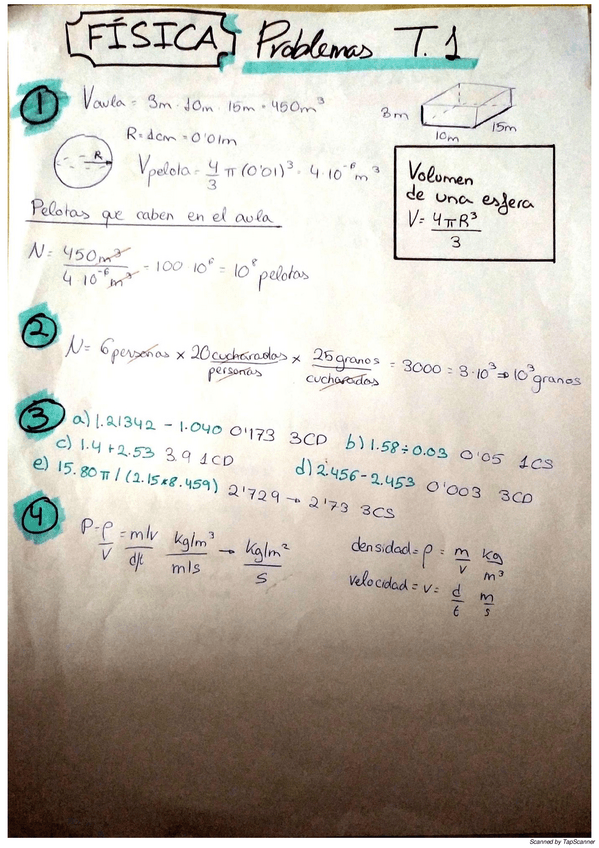 FÍSICA Problemas T.1
1 Vaula = 3m · 10m · 15m = 450m³
3m 10m 15m
R = 1cm = 0'01m
R
Vpelota = 4/3 π (0'01)³ = 4·10⁻⁶ m³
Volumen
de una esfera
V = 4πR³/3
Pelotas que caben en el aula
N = 450m³ / 4·10⁻⁶ m³ = 100·10⁶ = 10⁸ pelotas
2
N = 6personas x 20 cucharadas/personas x 25 granos/cucharadas = 3000 = 3·10³ → 10³ granos
3 a) 1.21342 - 1.040 0'173 3CD b) 1.58 ÷ 0.03 0'05 1CS
c) 1.4 + 2.53 3.9 1CD d) 2.456 - 2.453 0'003 3CD
e) 15.80 π / (2.15 x 8.459) 2'729 → 2'73 3CS
4
P = ρ/v = m/v / d/t kg/m³ / m/s → kg/m² / s
densidad = ρ = m/v kg/m³
velocidad = v = d/t m/s
Scanned by TapScanner